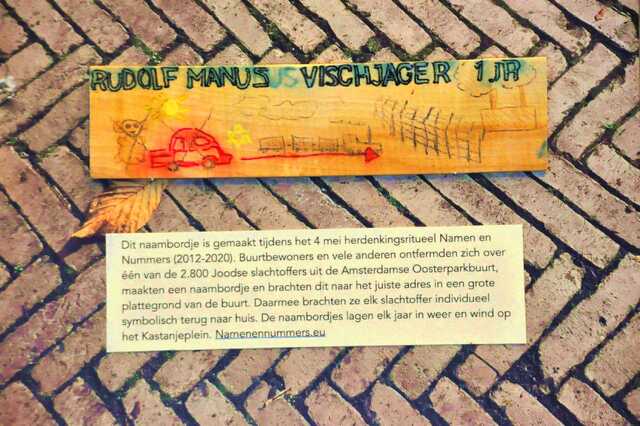 RUDOLF MANUS VISCHJAGER 1 JR
Dit naambordje is gemaakt tijdens het 4 mei herdenkingsritueel Namen en
Nummers (2012-2020). Buurtbewoners en vele anderen ontfermden zich over
één van de 2.800 Joodse slachtoffers uit de Amsterdamse Oosterparkbuurt,
maakten een naambordje en brachten dit naar het juiste adres in een grote
plattegrond van de buurt. Daarmee brachten ze elk slachtoffer individueel
symbolisch terug naar huis. De naambordjes lagen elk jaar in weer en wind op
het Kastanjeplein. Namenennummers.eu